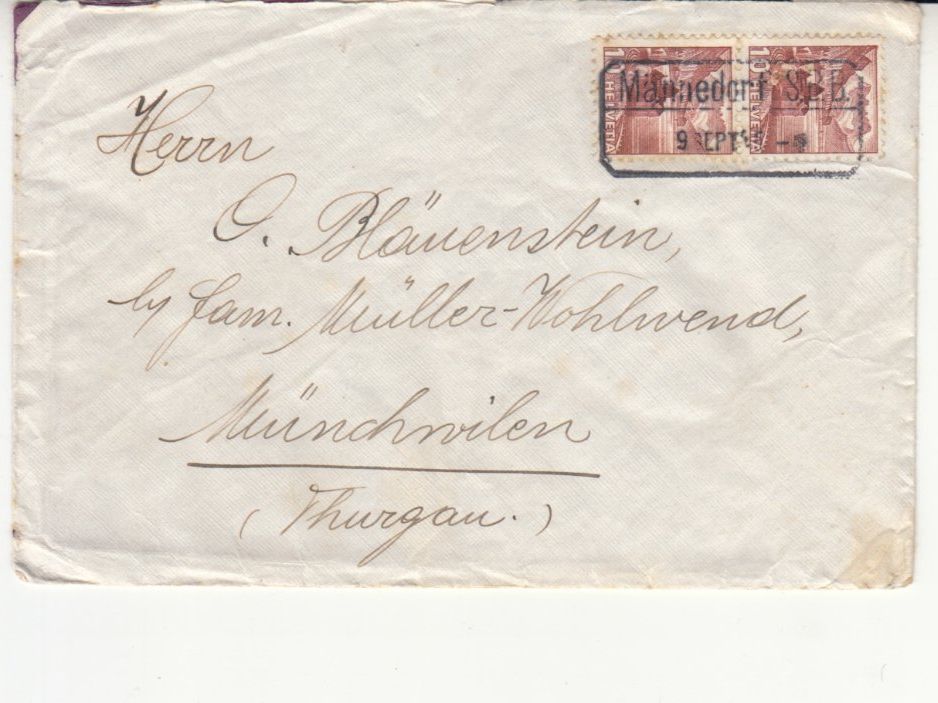 10 HELVETIA
10 HELVETIA
Männedorf S.B.B.
9 SEPT
Herrn
O. Bläuenstein,
by Fam. Müller-Wohlwend,
Münchwilen
(Thurgau.)